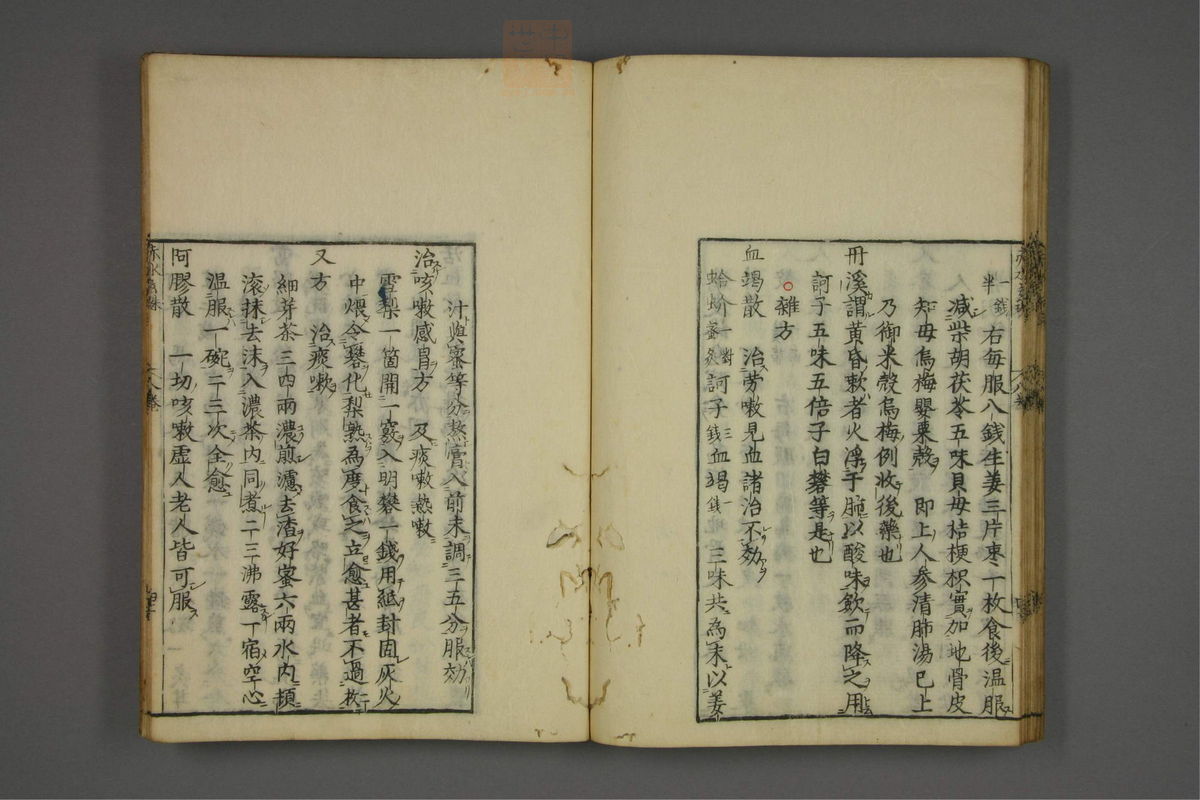 一錢半 右每服八錢生姜三片枣一枚食後温服
减柴胡茯苓五味貝母桔梗枳實加地骨皮
知母烏梅嬰粟殼 即上人参清肺湯已上
乃御米殼烏梅例收後藥也
丹溪謂黄昏嗽者火浮于肺以酸味歛而降之用
訶子五味五倍子白礬等是也
雜方
血竭散 治勞嗽見血諸治不効
蛤蚧一對蜜炙訶子三錢血竭一錢 三味共為末以姜
汁與蜜等分熬膏入前末調三五分服効
治咳嗽感冒方 及痰嗽熱嗽
雪梨一箇開一竅入明礬一錢用紙封固灰火
中煨令礬化梨熟為度食之立愈甚者不過二枚
又方 治痰嗽
細芽茶三四兩濃煎濾去渣好蜜六兩水内頓
滚抹去沫入濃茶内同煮二三沸露一宿空心
温服一碗二三次全愈
阿膠散 一切咳嗽虚人老人皆可服